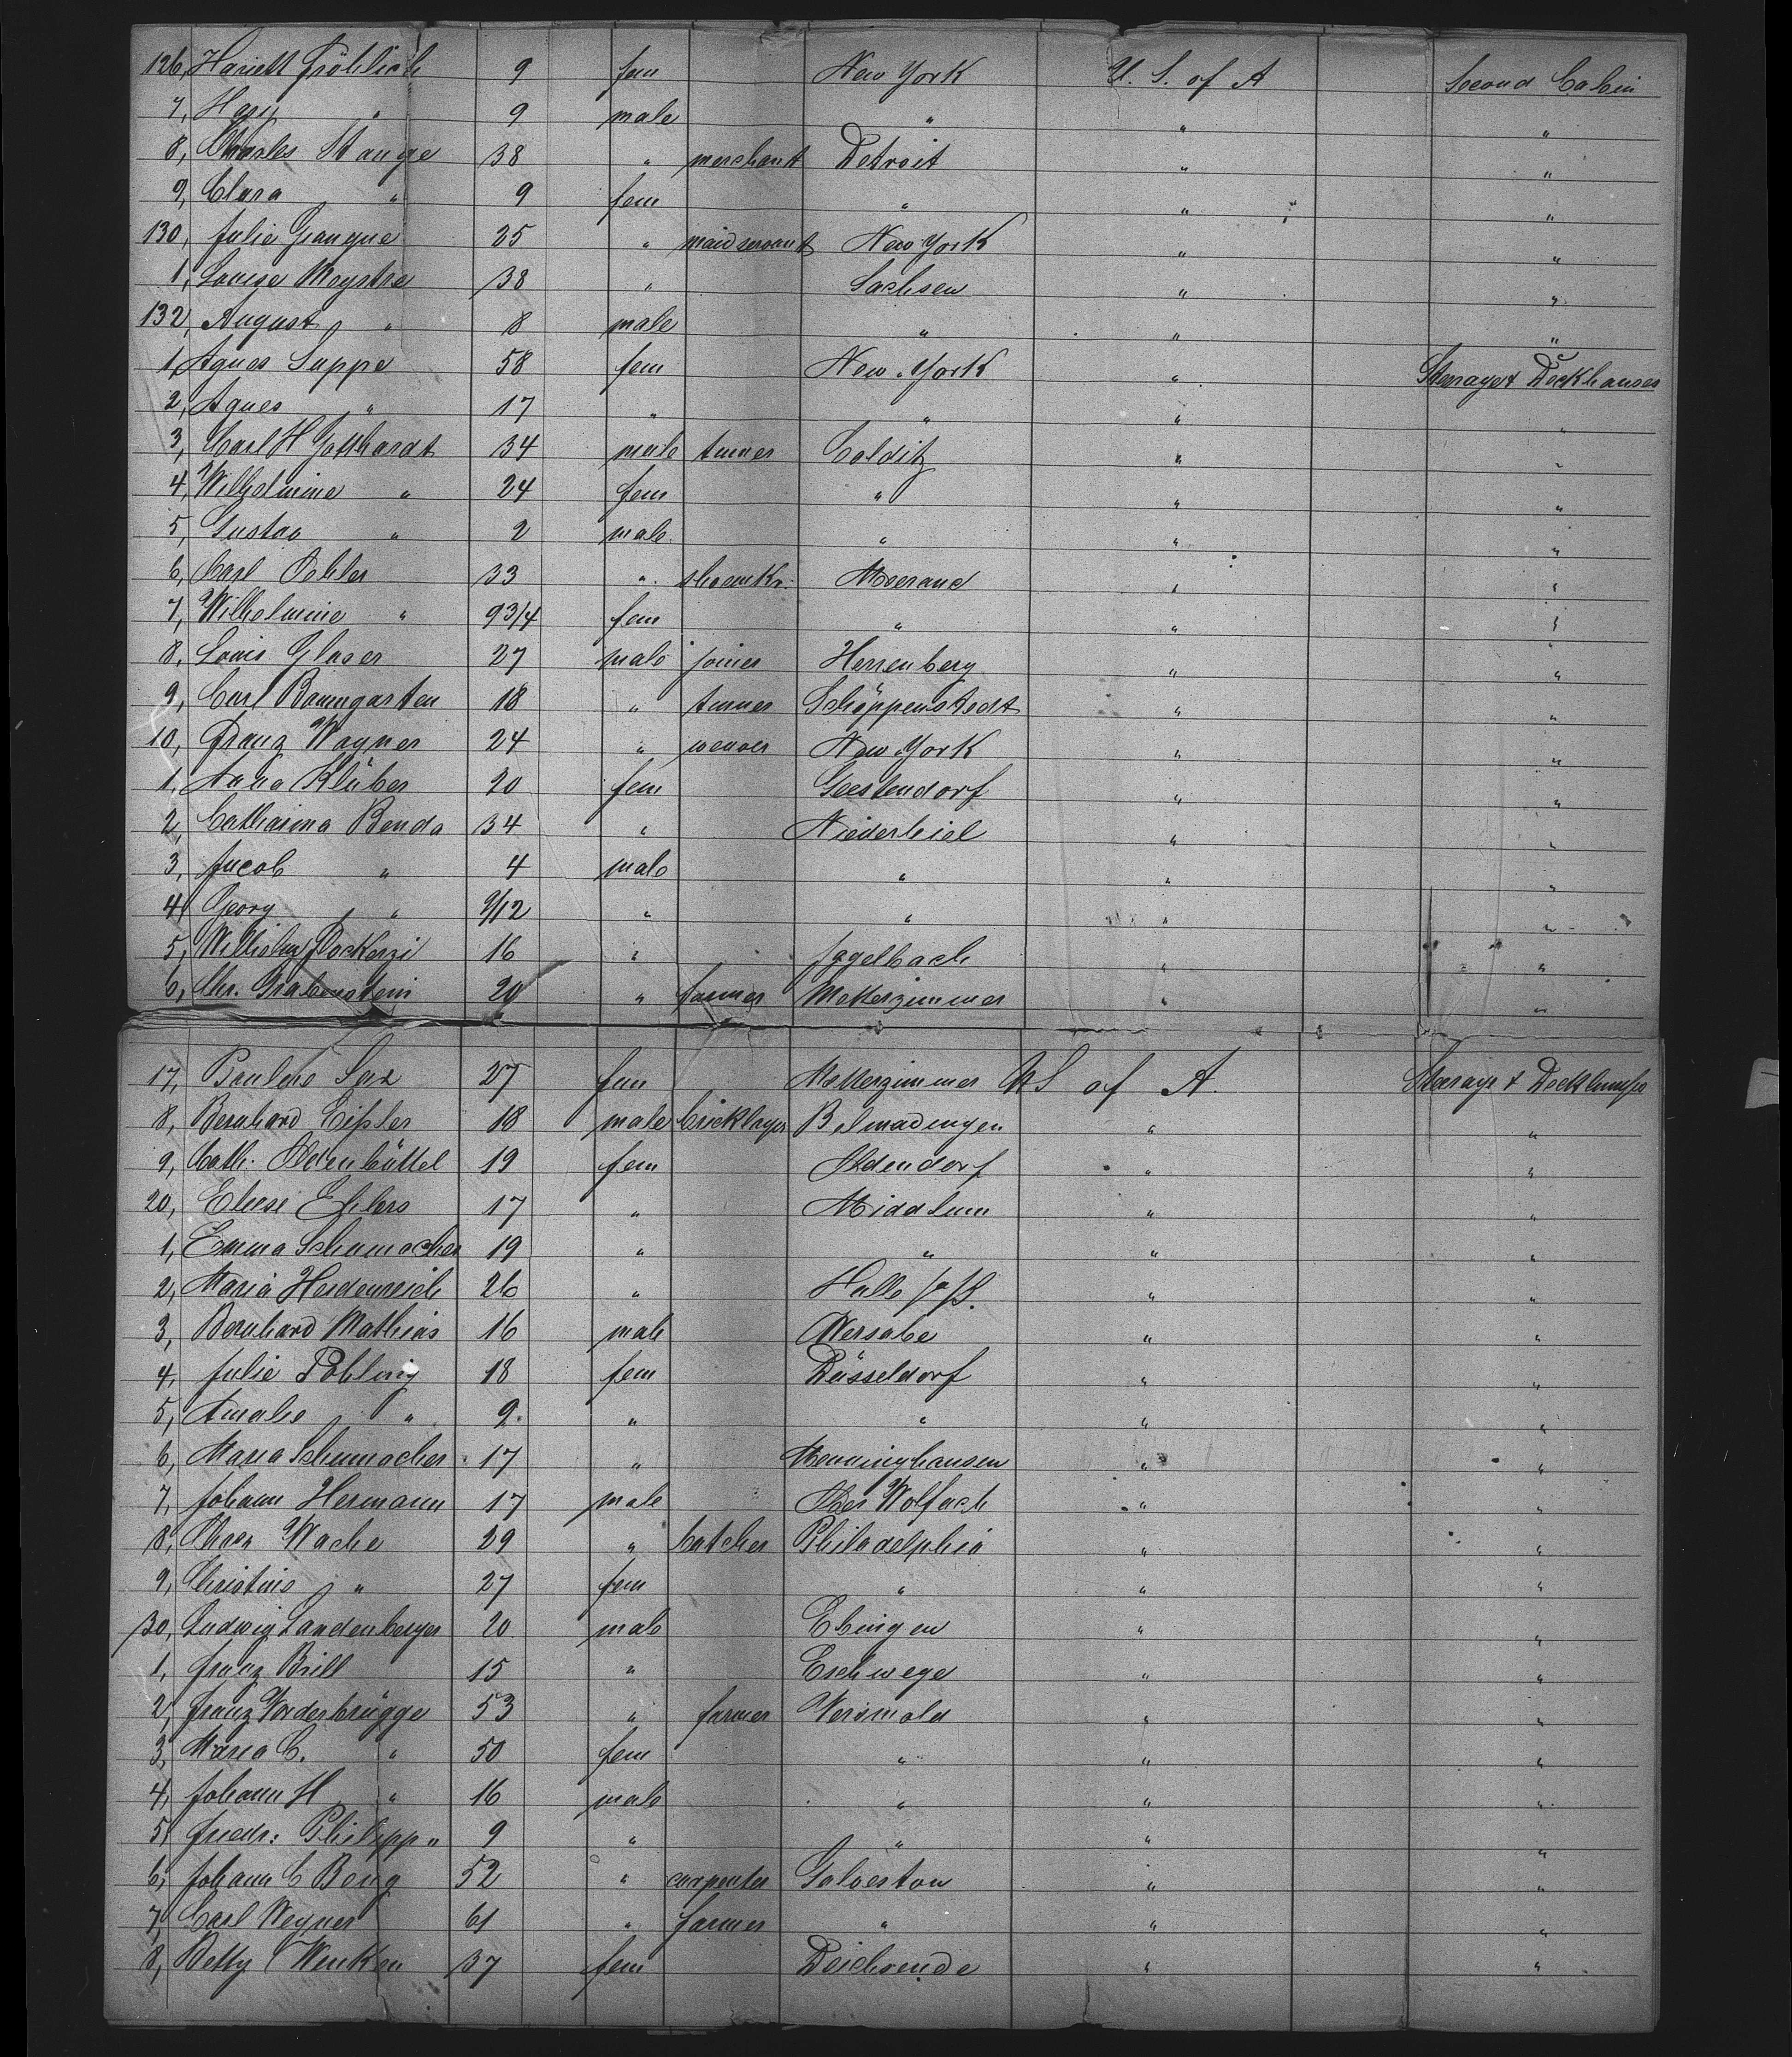 126, Hariett Fröhlich 9 fem New York U. S. of A Second Cabin
7, Hary " 9 male " " "
8, Charles Stange 38 " merchant Detroit " "
9, Clara " 9 fem " " "
130, Julie Grangue 25 " maidservant New York " "
1, Louise Moystre 38 " Sachsen " "
132, August " 8 male " " "
1, Agnes Suppe 58 fem New York " Steerage & Deckhouses
2, Agnes " 17 " " " "
3, Carl H Gotthardt 34 male turner Colditz " "
4, Wilhelmine " 24 fem " " "
5, Gustav " 2 male " " "
6, Carl Oehler 33 " shoemkr. Meerane " "
7, Wilhelmine " 9 3/4 fem " " "
8, Louis Glaser 27 male joiner Herrenberg " "
9, Carl Baumgarten 18 " turner Schöppenstedt " "
10, Franz Wagner 24 " weaver New York " "
1, Anna Klüber 20 fem Geestendorf " "
2, Catharina Benda 34 " Niederbiel " "
3, Jacob " 4 male " " "
4, Georg " 9/12 " " " "
5, Wilhelm 16 " Jagelbach " "
6, Chr. Grabenstein 20 " farmer Metterzimmer " "
17, Pauline Sax 27 fem Metterzimmer U S of A. Steerage & Deckhouse
8, Bernhard Eipler 18 male bricklayer " "
9, Cath. Adenbüttel 19 fem Aldendorf " "
20, Eliese Ehlers 17 " Middlum " "
1, Emma Schumacher 19 " " " "
2, Maria Heidenreich 26 " Halle a/S. " "
3, Bernhard Mathias 16 male Wersabe " "
4, Julie Pohling 18 fem Düsseldorf " "
5, Amalie " 9 " " " "
6, Maria Schumacher 17 " Menninghausen " "
7, Johann Hermann 17 male Ober Wolfach " "
8, Wache 29 " butcher Philadelphia " "
9, Christine " 27 fem " " "
30, Ludwig Landenberger 20 male Ebingen " "
1, Franz Brill 15 " Eschwege " "
2, Franz Vorderbrügge 53 " farmer Versmold " "
3, Maria C. " 50 fem " " "
4, Johann H " 16 male " " "
5, Friedr: Philipp " 9 " " " "
6, Johann C Beng 52 " carpenter Galveston " "
7, Carl Wegner 61 " farmer " " "
8, Betty Wenken 37 fem Deichsende " "